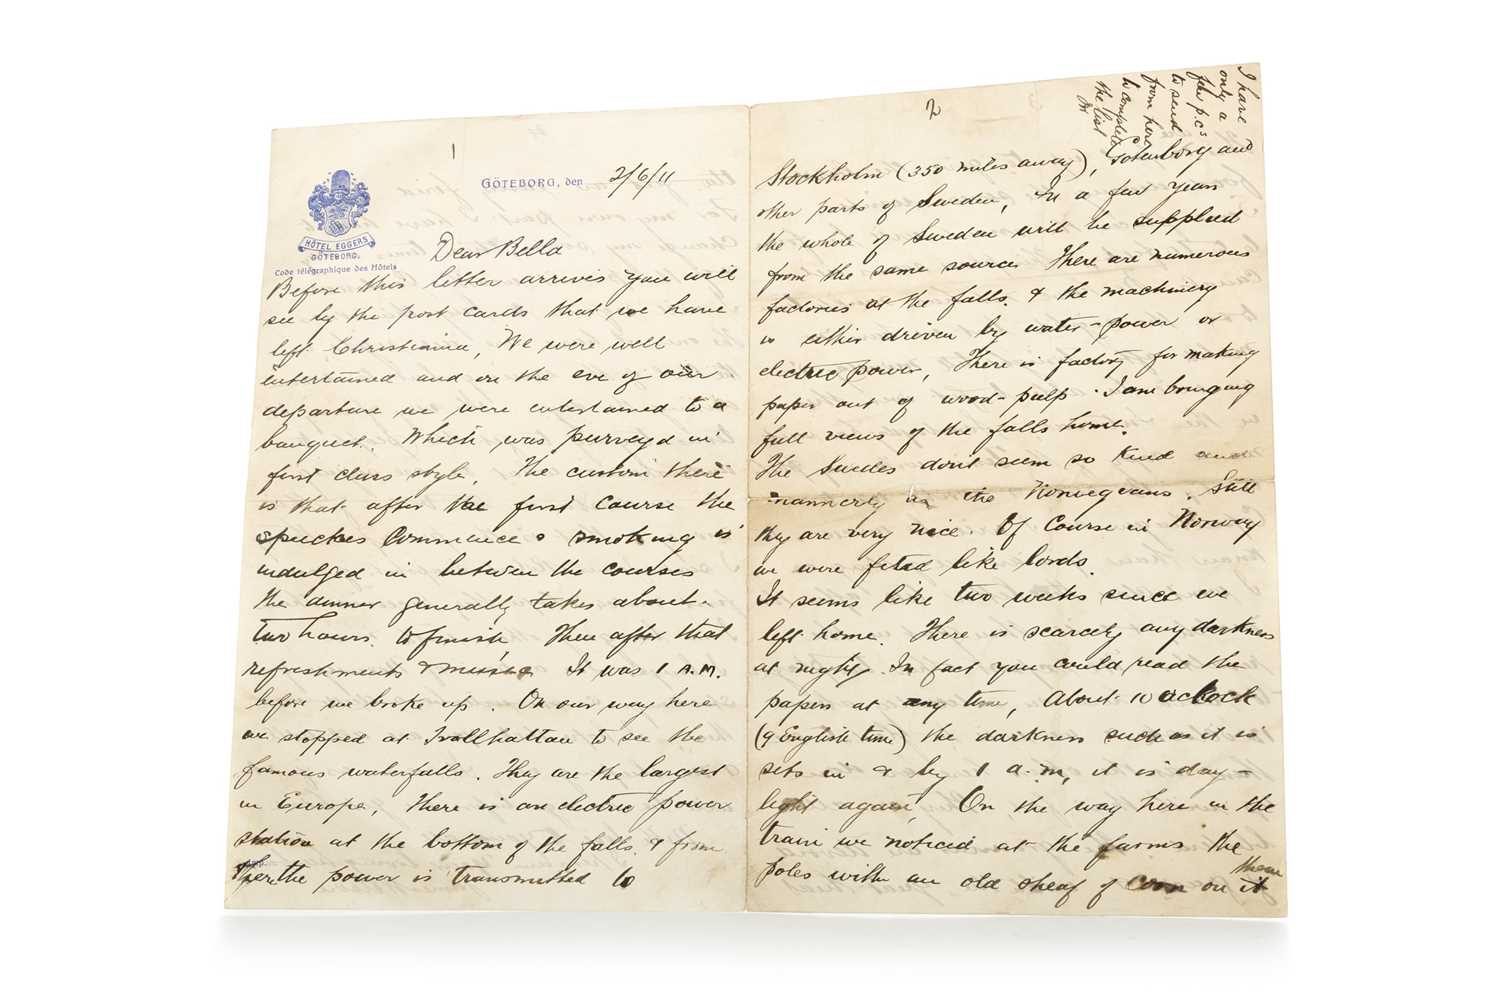 1
HÔTEL EGGERS
GÖTEBORG.
Code télégraphique des Hôtels
GÖTEBORG, den 2/6/11
Dear Bella
Before this letter arrives you will
see by the post cards that we have
left Christiania, We were well
entertained and on the eve of our
departure we were entertained to a
banquet. Which was purveyd in
first class style, The custom there
is that after the first course the
speeches commence & smoking is
indulged in between the courses
the dinner generally takes about
two hours to finish, Then after that
refreshments & music It was 1 A.M.
before we broke up. On our way here
we stopped at Trollhattan to see the
famous waterfalls. They are the largest
in Europe, There is an electric power
station at the bottom of the falls. & from
there the power is transmitted to
2
I have
only a
few p.cs
to send
from here
to complete
the list
Stockholm (350 miles away), Gotenborg and
other parts of Sweden, In a few years
the whole of Sweden will be supplied
from the same source There are numerous
factories at the falls. & the machinery
is either driven by water-power or
electric power, There is factory for making
paper out of wood-pulp. I am bringing
full views of the falls home.
The Swedes dont seem so kind and
mannerly as the Norwegeans. Still
they are very nice. Of course in Norway
we were feted like lords.
It seems like two weeks since we
left home. There is scarcely any darkness
at night. In fact you could read the
papers at any time, About 10 oclock
(9 English time) the darkness such as it is
sets in & by 1 a.m, it is day-
light again, On the way here in the
train we noticed at the farms the
poles with an old sheaf of corn on it
them